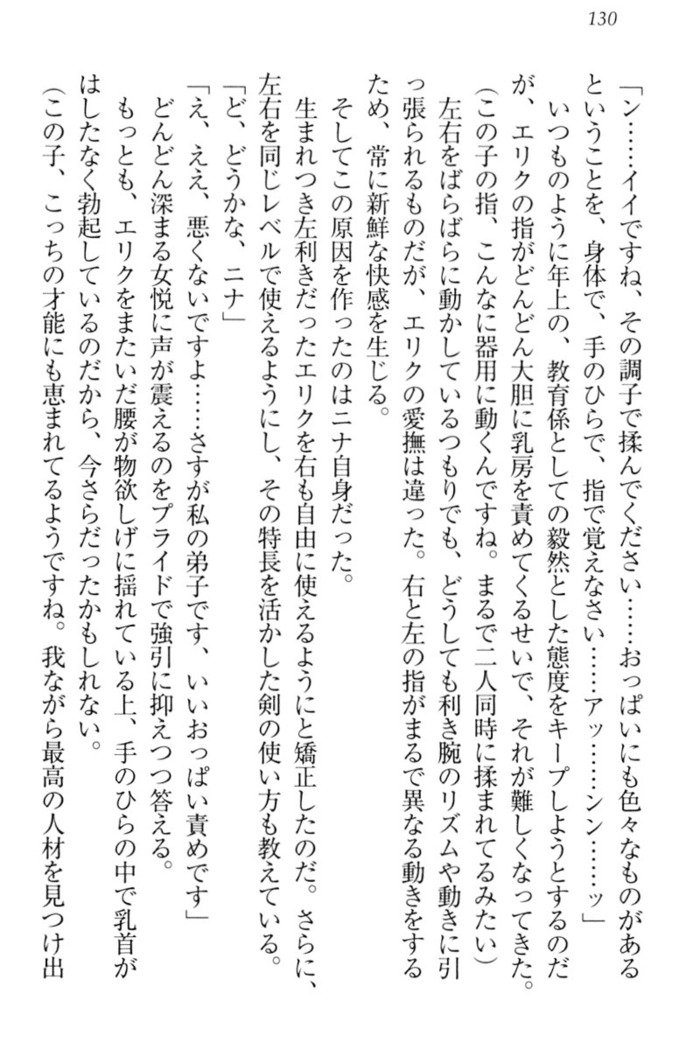 130
「ン……イイですね、その調子で揉んでください……おっぱいにも色々なものがある
ということを、身体で、手のひらで、指で覚えなさい……アッ……ンン……ッ」
いつものように年上の、教育係としての毅然とした態度をキープしようとするのだ
が、エリクの指がどんどん大胆に乳房を責めてくるせいで、それが難しくなってきた。
(この子の指、こんなに器用に動くんですね。まるで二人同時に揉まれてるみたい)
左右をばらばらに動かしているつもりでも、どうしても利き腕のリズムや動きに引
っ張られるものだが、エリクの愛撫は違った。右と左の指がまるで異なる動きをする
ため、常に新鮮な快感を生じる。
そしてこの原因を作ったのはニナ自身だった。
生まれつき左利きだったエリクを右も自由に使えるようにと矯正したのだ。さらに、
左右を同じレベルで使えるようにし、その特長を活かした剣の使い方も教えている。
「ど、どうかな、ニナ」
「え、ええ、悪くないですよ……さすが私の弟子です、いいおっぱい責めです」
どんどん深まる女悦に声が震えるのをプライドで強引に抑えつつ答える。
もっとも、エリクをまたいだ腰が物欲しげに揺れている上、手のひらの中で乳首が
はしたなく勃起しているのだから、今さらだったかもしれない。
(この子、こっちの才能にも恵まれてるようですね。我ながら最高の人材を見つけ出